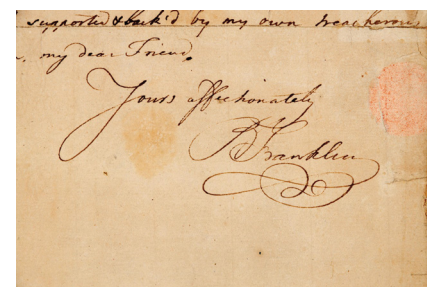 supported & back'd by my own treacherous
my dear Friend,
Yours affectionately
B Franklin